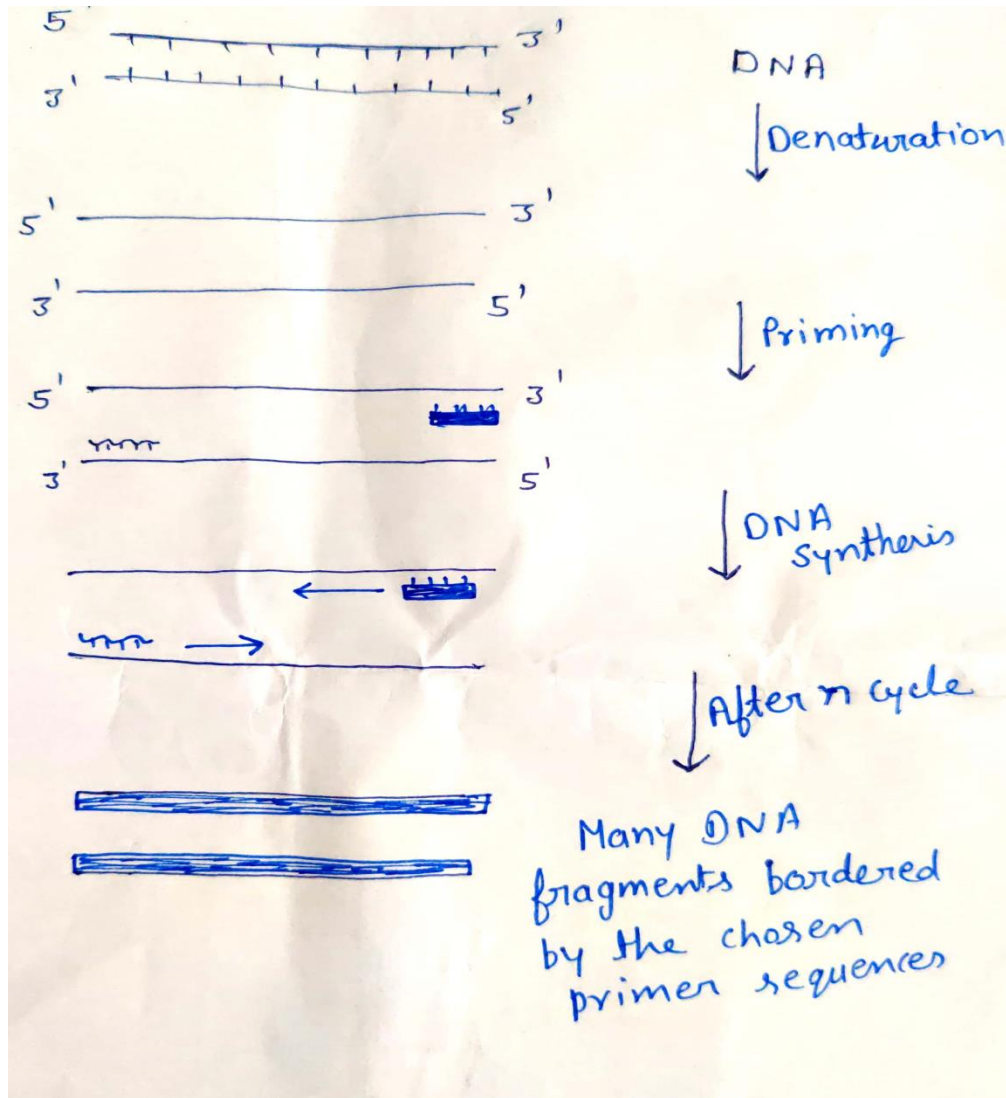 5' 3'
3' 5'
DNA
Denaturation
5' 3'
3' 5'
Priming
5' 3'
3' 5'
DNA
Synthesis
After n cycle
Many DNA
fragments bordered
by the chosen
primer sequences